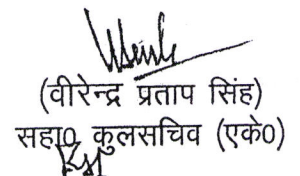 (वीरेन्द्र प्रताप सिंह)
सहा0 कुलसचिव (एके0)